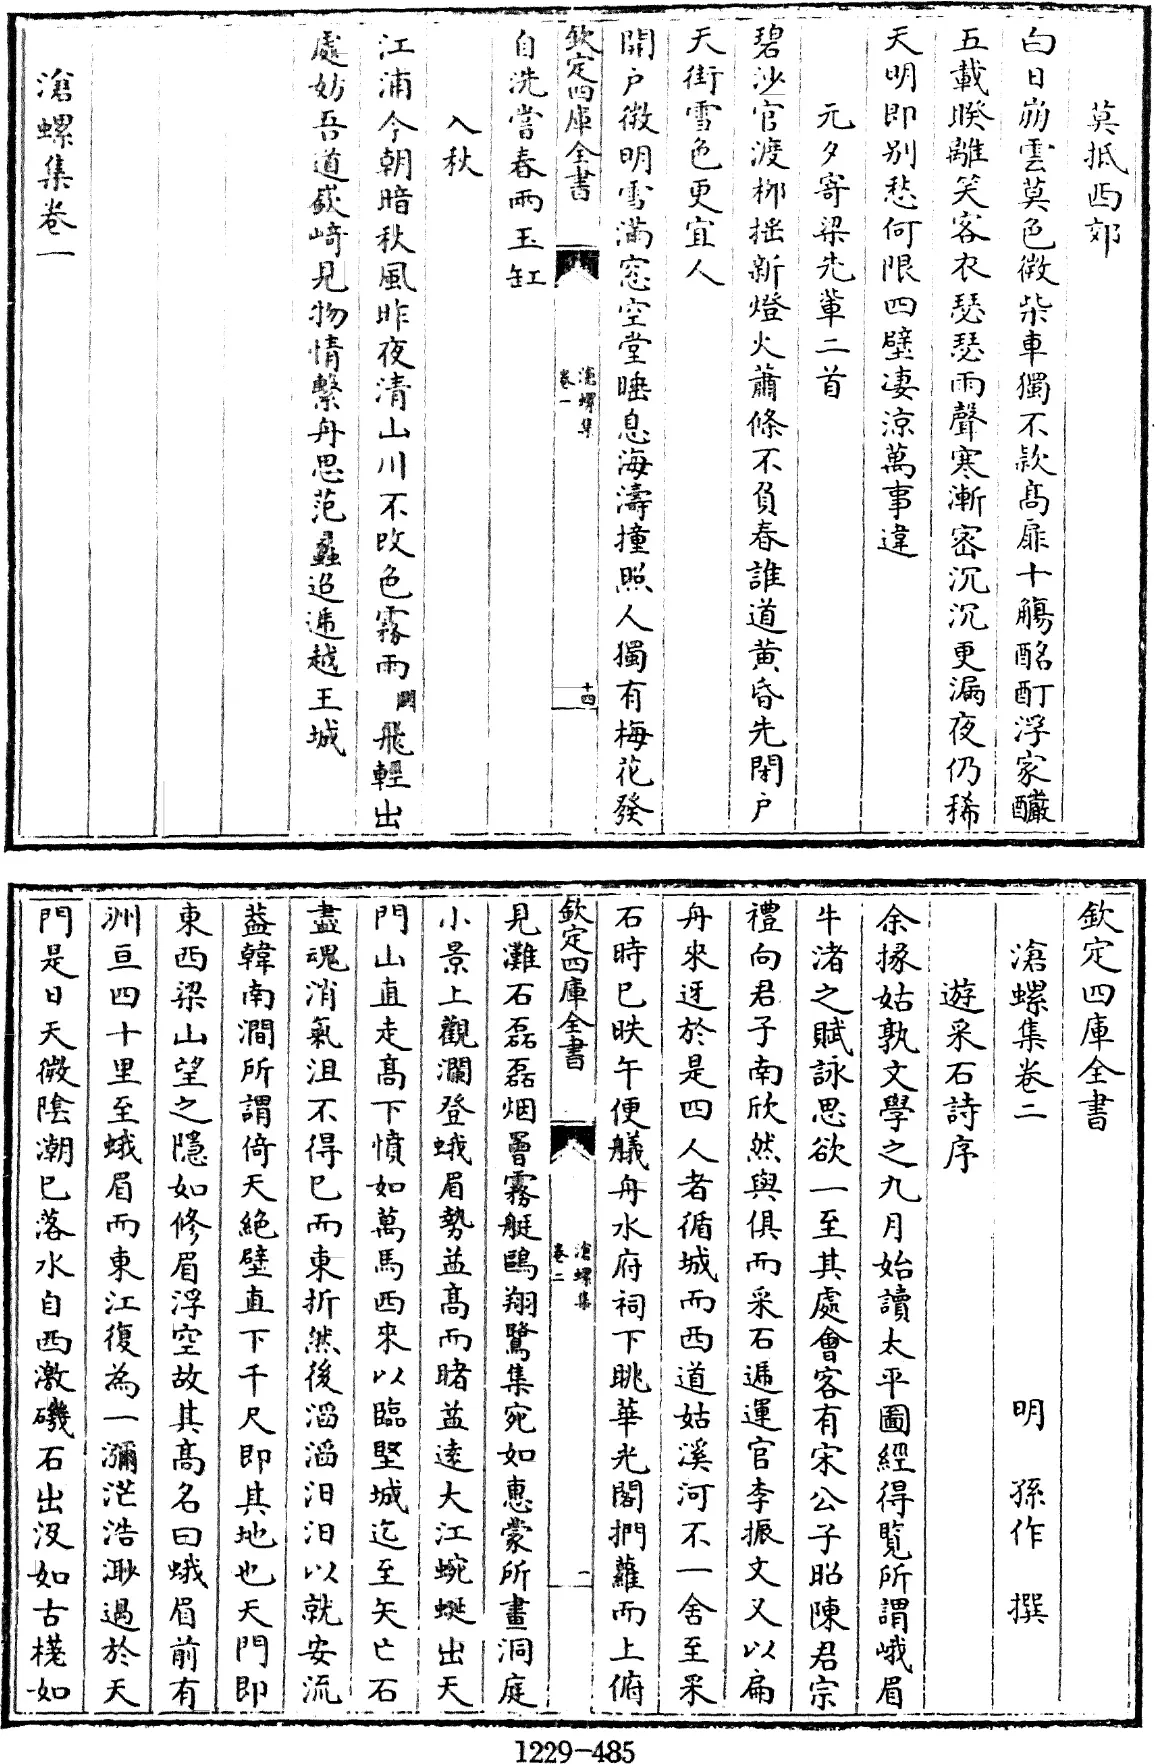 莫抵西郊
白日崩雲莫色微柴車獨不款高扉十觴酩酊浮家釅
五載暌離笑客衣瑟瑟雨聲寒漸密沉沉更漏夜仍稀
天明即别愁何限四壁凄涼萬事違
元夕寄梁先輩二首
碧沙官渡栁揺新燈火蕭條不負春誰道黄昏先閉户
天街雪色更宜人
開户微明雪滿窓空堂睡息海濤撞照人獨有梅花發
欽定四庫全書
滄螺集
卷一
十四
自洗嘗春兩玉缸
入秋
江浦今朝暗秋風昨夜清山川不改色霧雨闕飛輕出
處妨吾道嶔﨑見物情繫舟思范蠡迢遞越王城
滄螺集卷一
欽定四庫全書
滄螺集卷二
明 孫作 撰
遊采石詩序
余掾姑孰文學之九月始讀太平圖經得覧所謂峨眉
牛渚之賦詠思欲一至其處會客有宋公子昭陳君宗
禮向君子南欣然與俱而采石遞運官李振文又以扁
舟來迓於是四人者循城而西道姑溪河不一舍至采
石時已昳午便艤舟水府祠下眺華光閣捫蘿而上俯
欽定四庫全書
滄螺集
卷二
二
見灘石磊磊烟罾霧艇鷗翔鷺集宛如惠蒙所畫洞庭
小景上觀瀾登蛾眉勢益高而睹益逺大江蜿蜒出天
門山直走高下憤如萬馬西來以臨堅城迄至矢亡石
盡魂消氣沮不得已而東折然後滔滔汨汨以就安流
葢韓南澗所謂倚天絶壁直下千尺即其地也天門即
東西梁山望之隱如修眉浮空故其高名曰蛾眉前有
洲亘四十里至蛾眉而東江復為一瀰茫浩渺過於天
門是日天微隂潮已落水自西激磯石出没如古棧如
1229-485